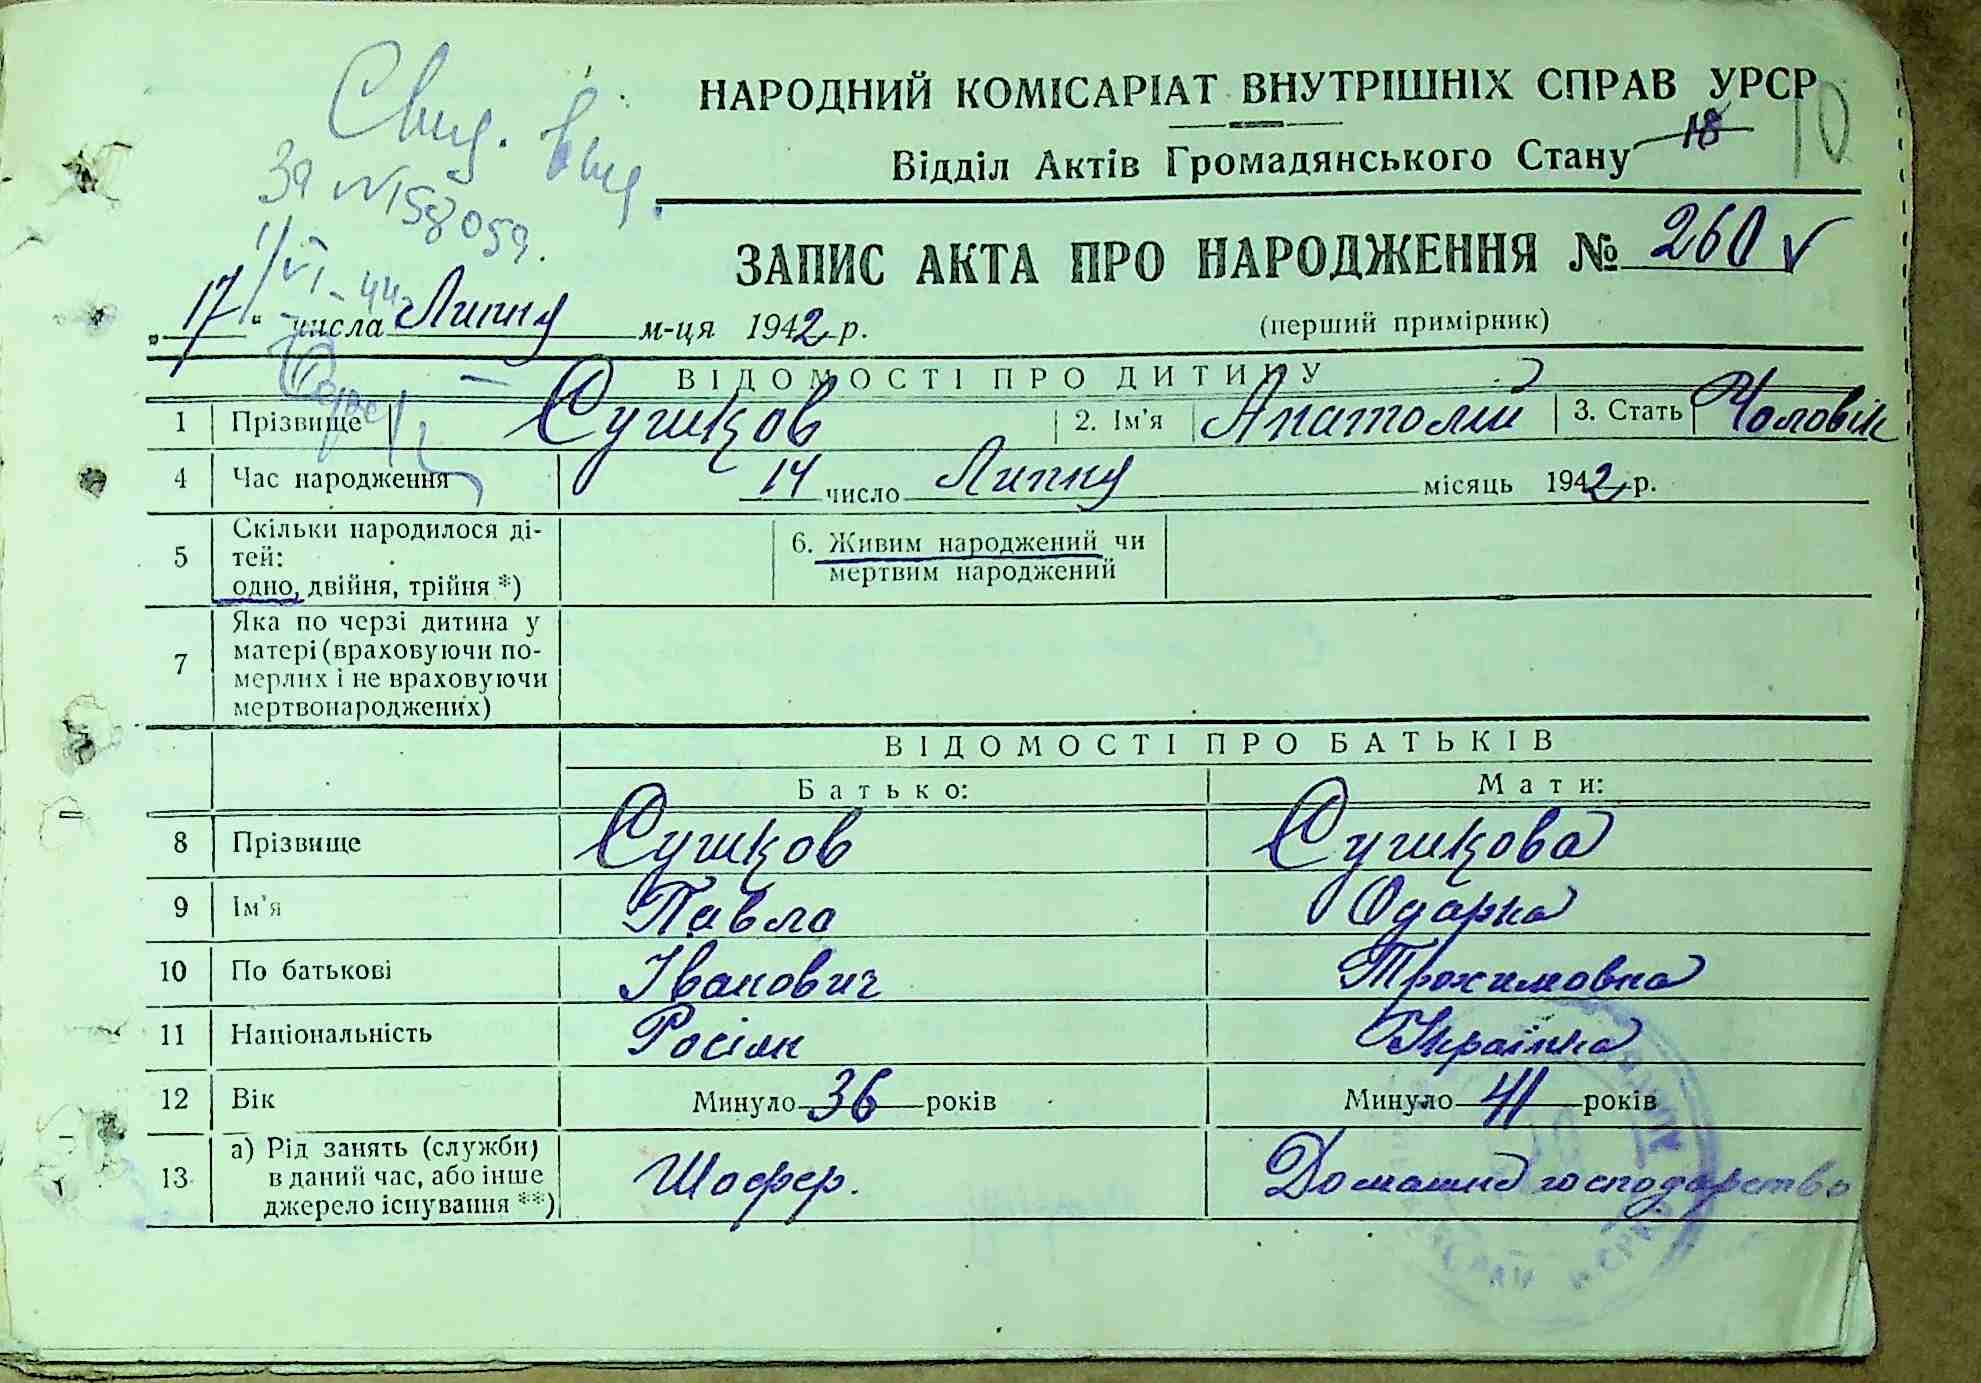 Свид. вид.
За №158059.
1/VI-44
НАРОДНИЙ КОМІСАРІАТ ВНУТРІШНІХ СПРАВ УРСР
Відділ Актів Громадянського Стану 18 10
ЗАПИС АКТА ПРО НАРОДЖЕННЯ № 260
„17“ числа Липня м-ця 1942 р. (перший примірник)
ВІДОМОСТІ ПРО ДИТИНУ
1 Прізвище Сушков 2. Ім'я Анатолій 3. Стать Чоловік
4 Час народження 14 число Липня місяць 1942 р.
5 Скільки народилося ді-
тей:
одно, двійня, трійня *)
6. Живим народжений чи
мертвим народжений
7 Яка по черзі дитина у
матері (враховуючи по-
мерлих і не враховуючи
мертвонароджених)
ВІДОМОСТІ ПРО БАТЬКІВ
Батько: Мати:
8 Прізвище Сушков Сушкова
9 Ім'я Павло Одарка
10 По батькові Іванович Трохимовна
11 Національність Росіян Українка
12 Вік Минуло 36 років Минуло 41 років
13 а) Рід занять (служби)
в даний час, або інше
джерело існування **)
Шофер. Домашнє господарство